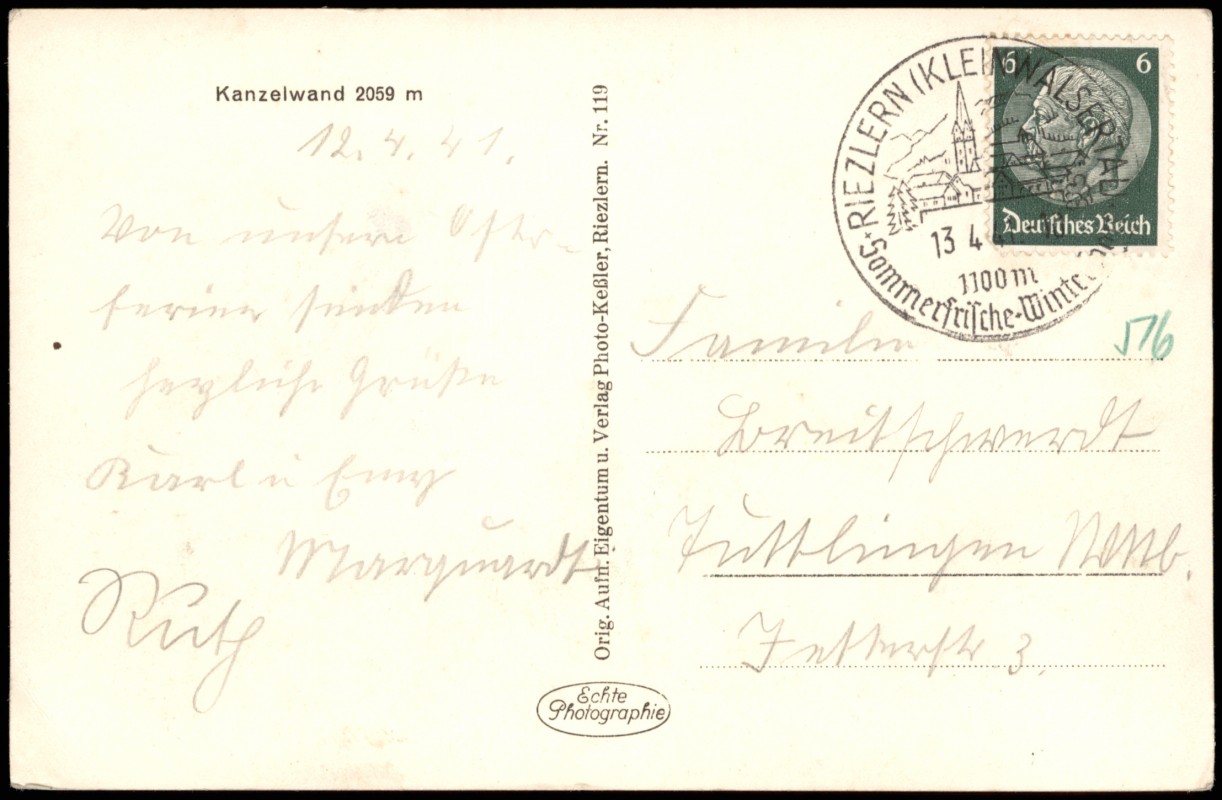 Kanzelwand 2059 m
12.4.41.
Von unseren Oster-
ferien senden
herzliche Grüße
Karl u Emy
Marquardt
Ruth
Orig. Aufn. Eigentum u. Verlag Photo-Keßler, Riezlern. Nr. 119
Echte
Photographie
RIEZLERN (KLEINWALSERTAL)
13 4 41
1100 m
Sommerfrische-Winter
6 6
Deutsches Reich
516
Familie
Breitschwerdt
Tuttlingen Wttb.
Jetterstr 3.